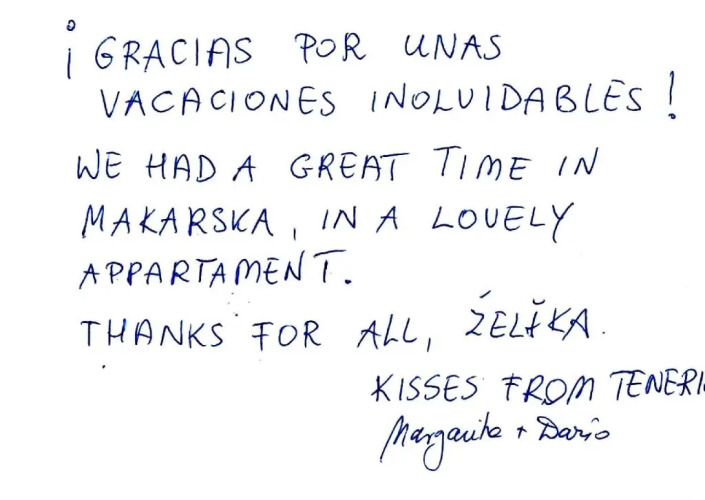 ¡GRACIAS POR UNAS
VACACIONES INOLVIDABLES!
WE HAD A GREAT TIME IN
MAKARSKA, IN A LOVELY
APPARTAMENT.
THANKS FOR ALL, ŹELǰKA.
KISSES FROM TENERI
Margarita + Dario